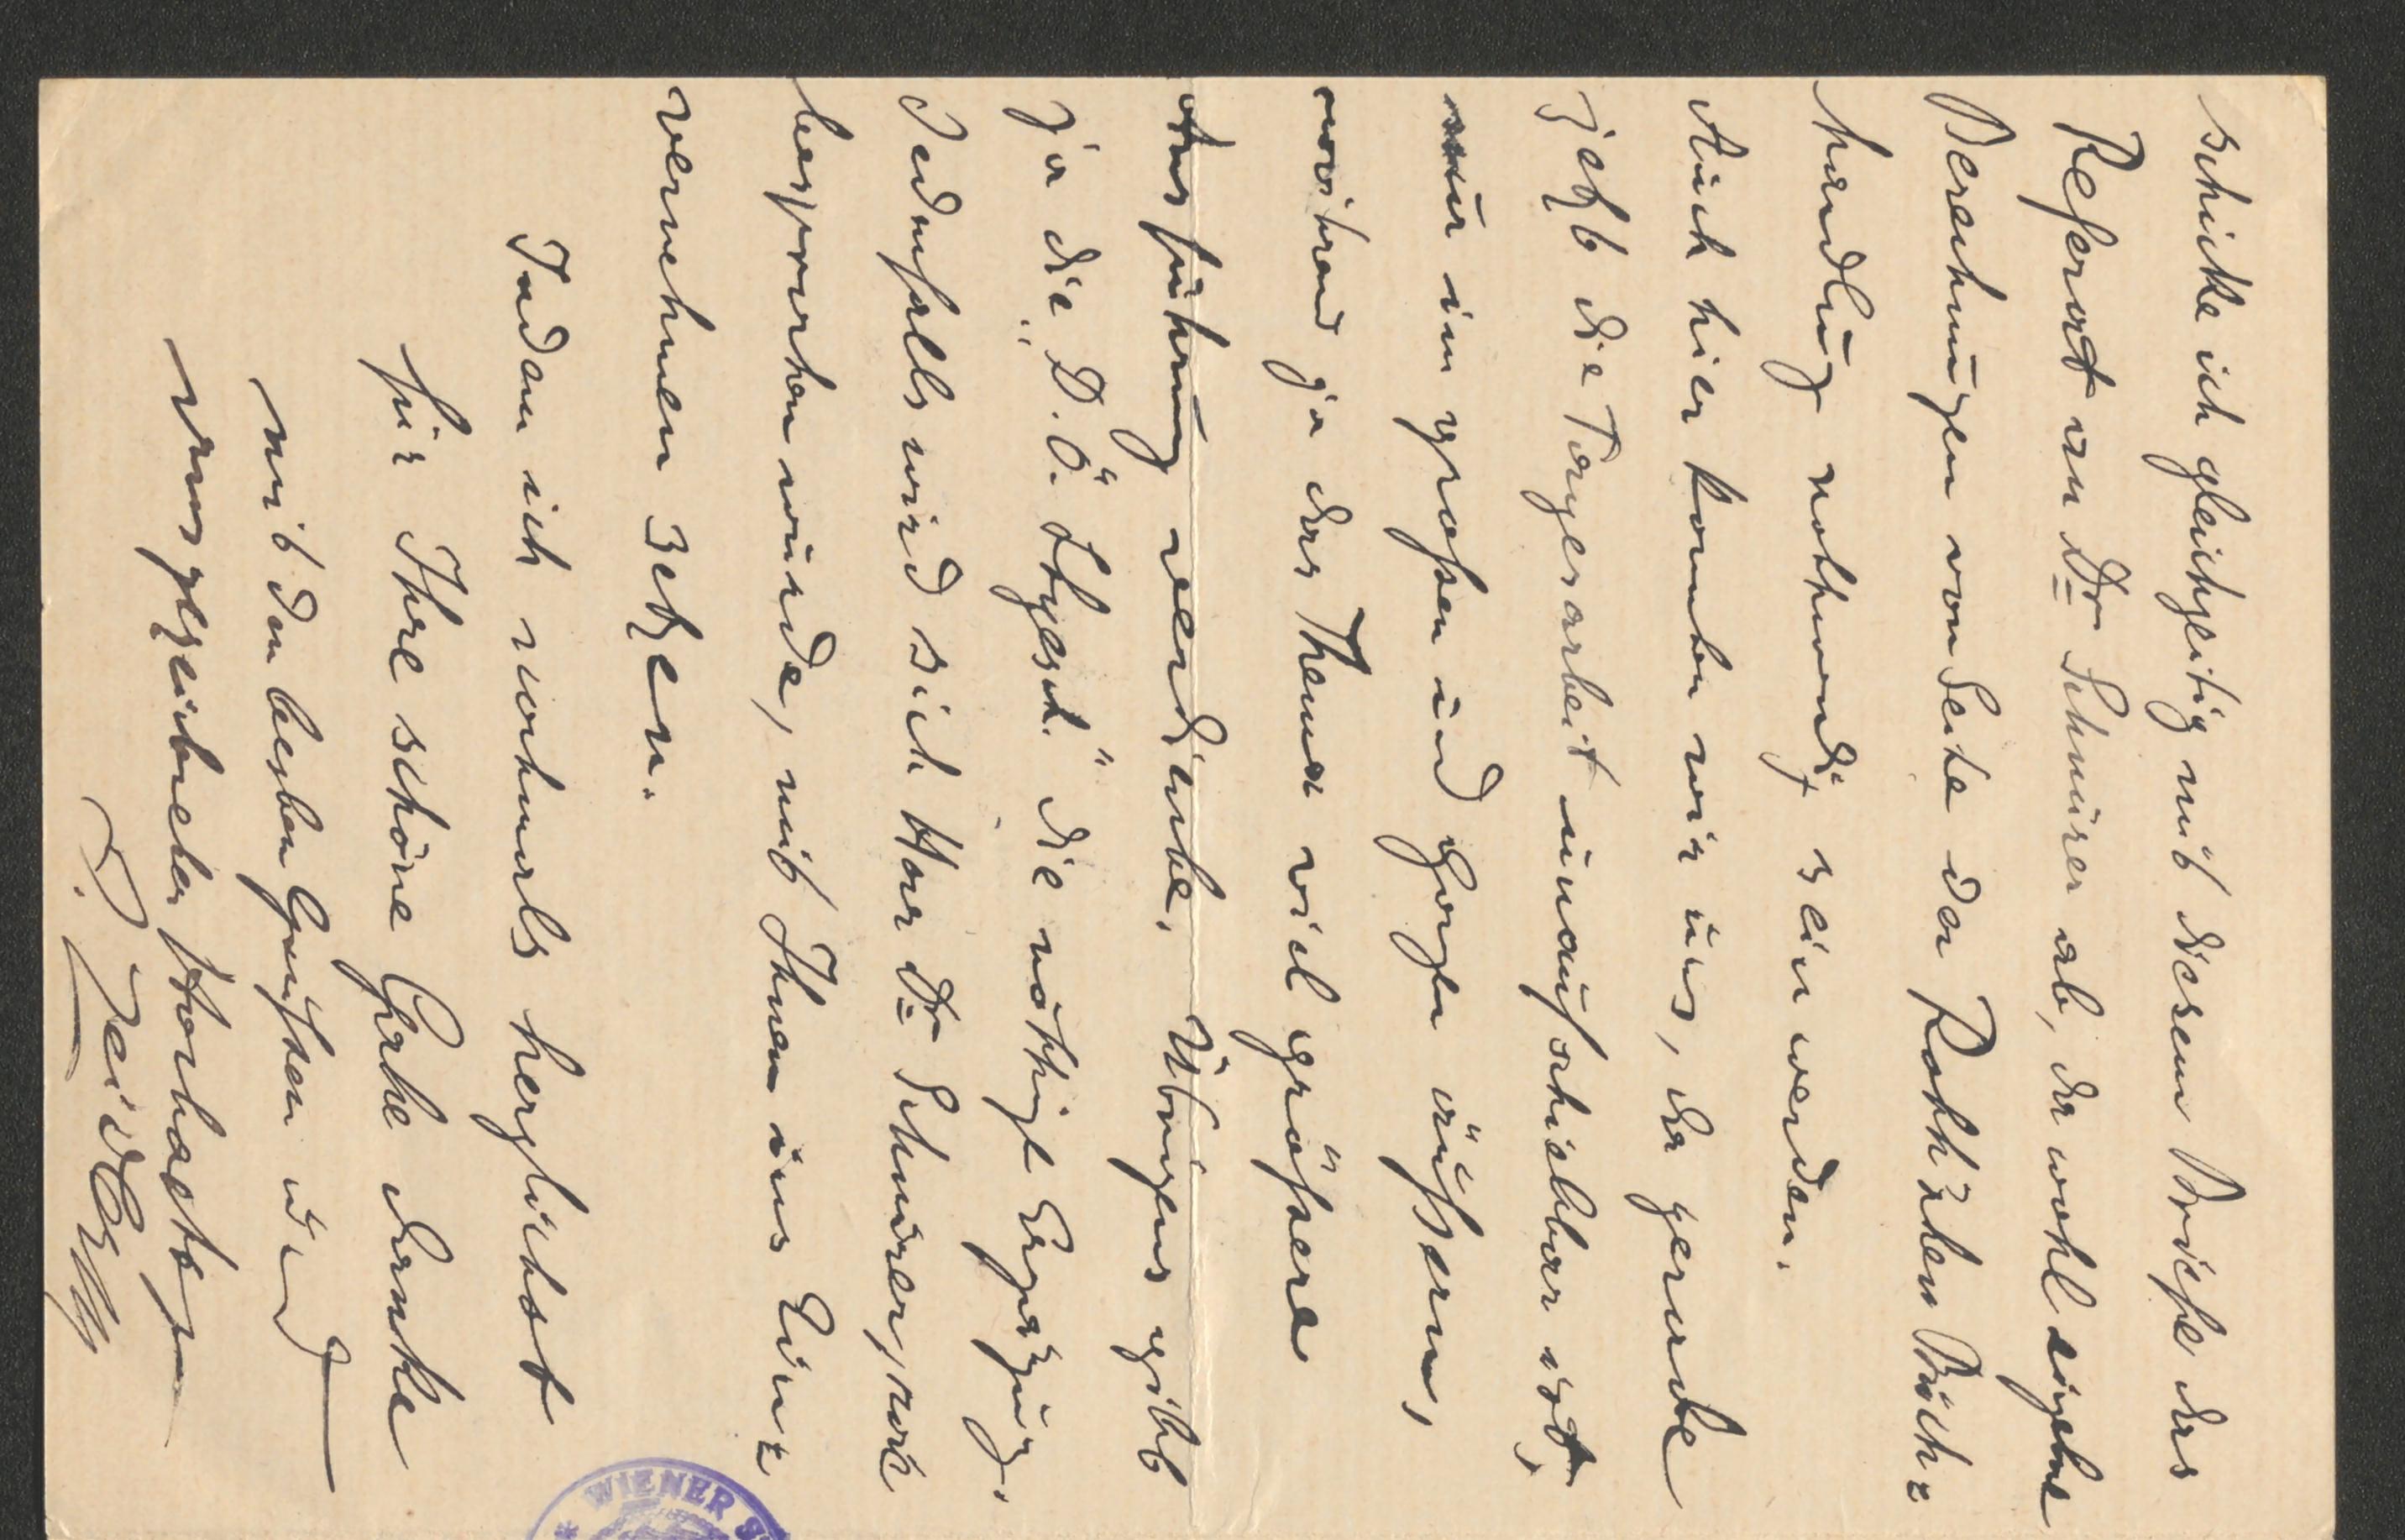 schicke ich gleichzeitig mit diesem Briefe das
Referat an Dr Schnürer ab, da wohl eigene
Berechnungen von Seite der Roth'schen Buch=
handlung nothwendig sein werden.
Auch hier konnten wir uns, da gerade
jetzt die Tagesarbeit unaufschiebbar ist,
nur im großen und Ganzen äußern,
während ja das Thema viel größere
Ausführung verdiente. Übrigens gibt
ja die „D. Ö. Lhgesch." die nöthige Ergänzung.
Jedenfalls wird sich Herr Dr Schnürer,
besprechen würde, mit Ihnen ins Ein=
vernehmen setzen.
Indem ich nochmals herzlichst
für Ihre schöne Gabe danke
mit den besten Grüßen und
ausgezeichneter Hochachtung
J. Zeidler
WIENER